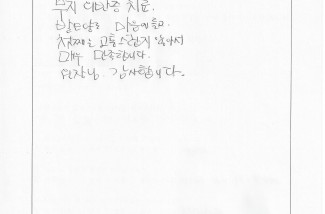 무지 대만증 치료.
발모양도 마음에 들고.
첫째는 고통스럽지 않아서
매우 만족합니다.
원장님 감사합니다.